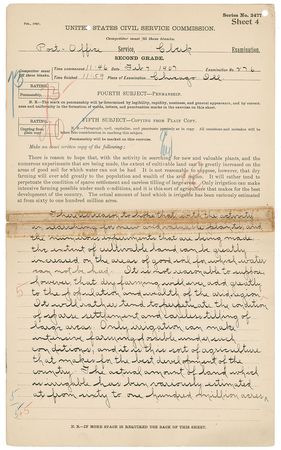 Series No. 2477
Sheet 4
UNITED STATES CIVIL SERVICE COMMISSION.
Competitor must fill these blanks.
Post-Office Service, Clerk Examination.
SECOND GRADE.
Time commenced 11-46 Date Feb 7 1907 Examination No. 276
Time finished 11-59 Place of Examination Chicago Ill
FOURTH SUBJECT—PENMANSHIP.
Rating:
Penmanship,
N. B.—The mark on penmanship will be determined by legibility, rapidity, neatness, and general appearance, and by correctness and uniformity in the formation of words, letters, and punctuation marks in the exercise on this sheet.
FIFTH SUBJECT—COPYING FROM PLAIN COPY.
N. B.—Paragraph, spell, capitalize, and punctuate precisely as in copy. All omissions and mistakes will be taken into consideration in marking this subject.
Penmanship will be marked on this exercise.
Make an exact written copy of the following:
There is reason to hope that, with the activity in searching for new and valuable plants, and the
numerous experiments that are being made, the extent of cultivable land can be greatly increased on the
areas of good soil for which water can not be had. It is not reasonable to suppose, however, that dry
farming will ever add greatly to the population and wealth of the arid region. It will rather tend to
perpetuate the condition of sparse settlement and careless tilling of large areas. Only irrigation can make
intensive farming possible under such conditions, and it is this sort of agriculture that makes for the best
development of the country. The actual amount of land which is irrigable has been variously estimated
at from sixty to one hundred million acres.
There is reason to hope that, with the activity
in searching for new and valuable plants, and
the numerous experiments that are being made,
the extent of cultivable land can be greatly
increased on the areas of good soil for which water
can not be had. It is not reasonable to suppose,
however, that dry farming will ever add greatly
to the population and wealth of the arid region.
It will rather tend to perpetuate the condition
of sparse settlement and careless tilling of
large areas. Only irrigation can make
intensive farming possible under such
conditions, and it is this sort of agriculture
that makes for the best development of the
country. The actual amount of land which
is irrigable has been variously estimated
at from sixty to one hundred million acres.
N. B.—IF MORE SPACE IS REQUIRED USE BACK OF THIS SHEET.